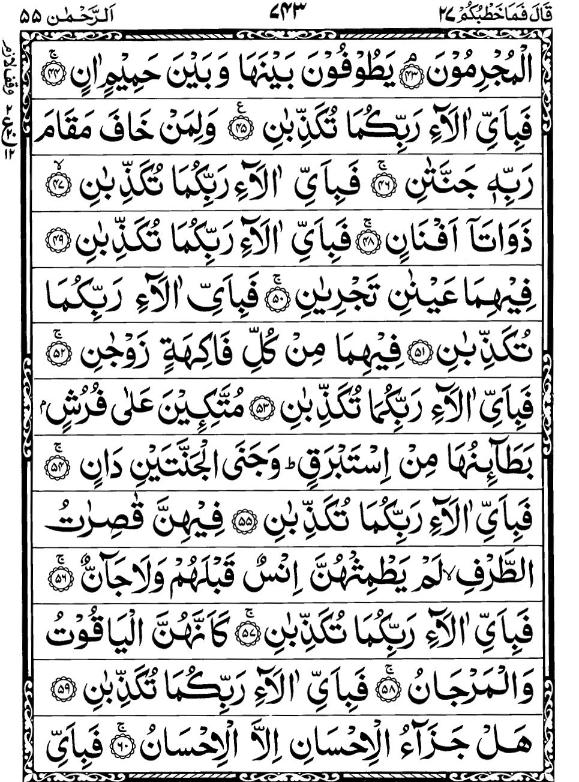 قَالَ فَمَا خَطْبُكُمْ ٢٧ ٧٤٣ اَلرَّحْمٰن ٥٥
الْمُجْرِمُوْنَ ۘ﴿۴۳﴾ يَطُوْفُوْنَ بَيْنَهَا وَبَيْنَ حَمِيْمٍ اٰنٍ ۚ﴿۴۴﴾
فَبِاَيِّ اٰلَآءِ رَبِّكُمَا تُكَذِّبٰنِ ﴿۴۵﴾ ع وَلِمَنْ خَافَ مَقَامَ
رَبِّهٖ جَنَّتٰنِ ۚ﴿۴۶﴾ فَبِاَيِّ اٰلَآءِ رَبِّكُمَا تُكَذِّبٰنِ ۙ﴿۴۷﴾
ذَوَاتَآ اَفْنَانٍ ۚ﴿۴۸﴾ فَبِاَيِّ اٰلَآءِ رَبِّكُمَا تُكَذِّبٰنِ ﴿۴۹﴾
فِيْهِمَا عَيْنٰنِ تَجْرِيٰنِ ۚ﴿۵۰﴾ فَبِاَيِّ اٰلَآءِ رَبِّكُمَا
تُكَذِّبٰنِ ﴿۵۱﴾ فِيْهِمَا مِنْ كُلِّ فَاكِهَةٍ زَوْجٰنِ ۚ﴿۵۲﴾
فَبِاَيِّ اٰلَآءِ رَبِّكُمَا تُكَذِّبٰنِ ﴿۵۳﴾ مُتَّكِـِٕيْنَ عَلٰى فُرُشٍۭ
بَطَآىِٕنُهَا مِنْ اِسْتَبْرَقٍ ؕ وَجَنَى الْجَنَّتَيْنِ دَانٍ ۚ﴿۵۴﴾
فَبِاَيِّ اٰلَآءِ رَبِّكُمَا تُكَذِّبٰنِ ﴿۵۵﴾ فِيْهِنَّ قٰصِرٰتُ
الطَّرْفِ ۙ لَمْ يَطْمِثْهُنَّ اِنْسٌ قَبْلَهُمْ وَلَا جَآنٌّ ۚ﴿۵۶﴾
فَبِاَيِّ اٰلَآءِ رَبِّكُمَا تُكَذِّبٰنِ ۚ﴿۵۷﴾ كَاَنَّهُنَّ الْيَاقُوْتُ
وَالْمَرْجَانُ ۚ﴿۵۸﴾ فَبِاَيِّ اٰلَآءِ رَبِّكُمَا تُكَذِّبٰنِ ﴿۵۹﴾
هَلْ جَزَآءُ الْاِحْسَانِ اِلَّا الْاِحْسَانُ ۚ﴿۶۰﴾ فَبِاَيِّ
وقف لازم